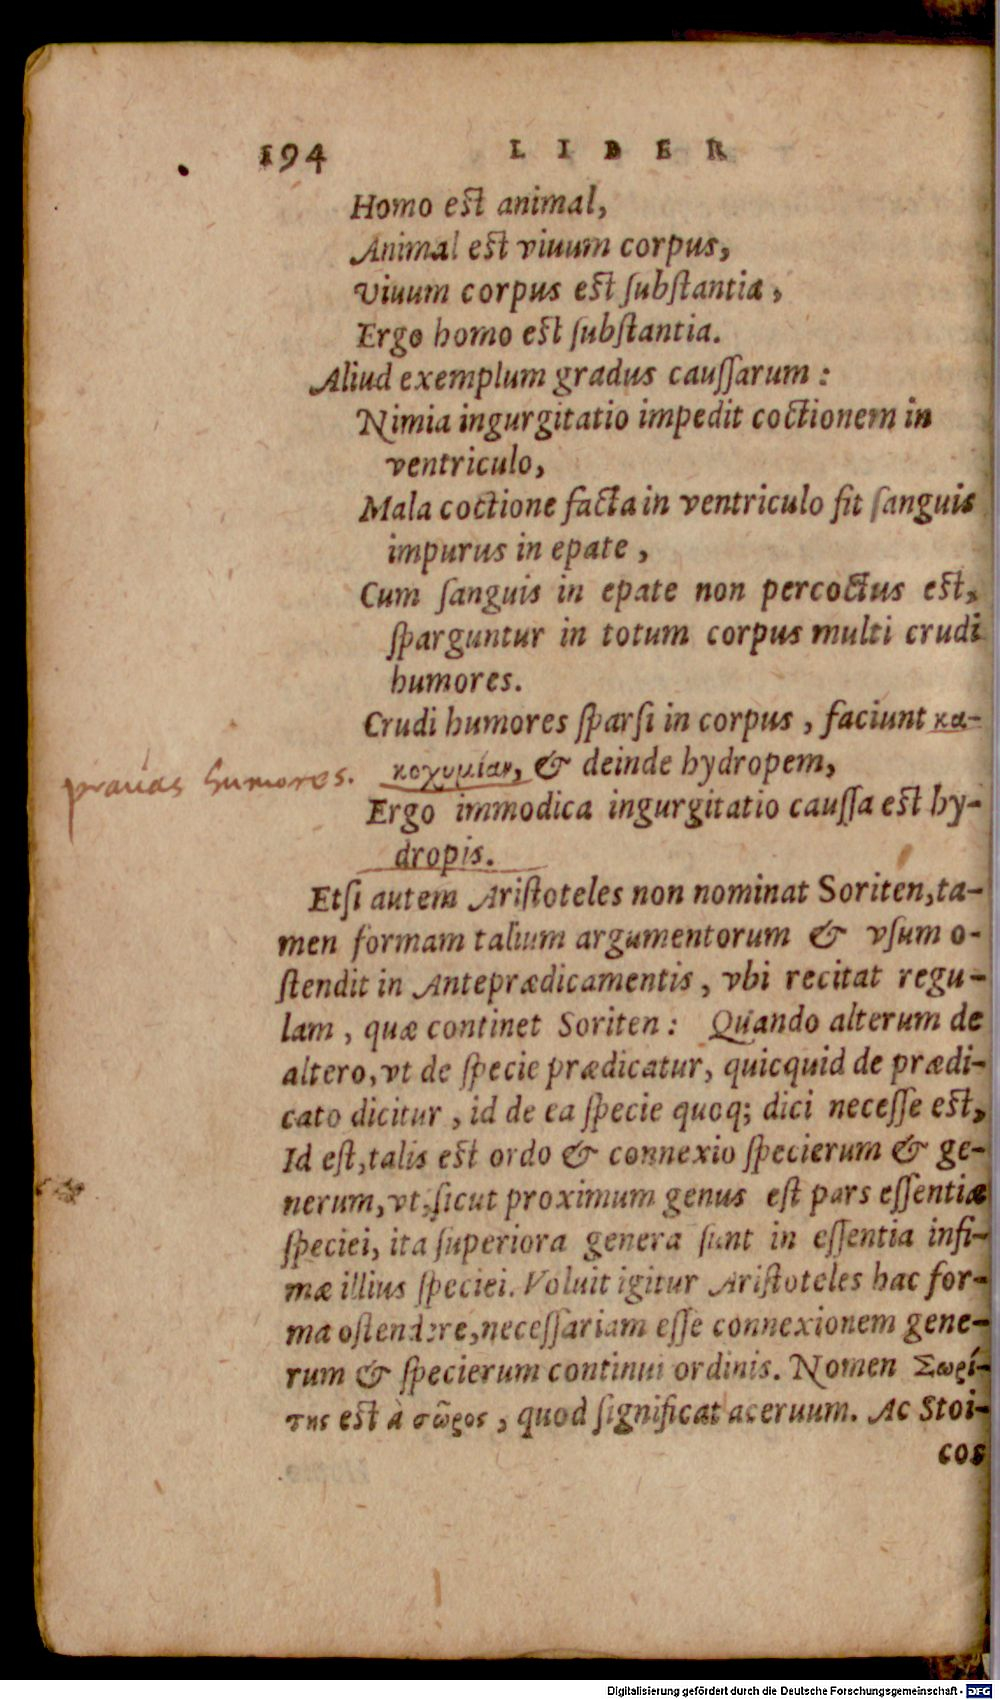 194 LIBER
Homo est animal,
Animal est viuum corpus,
Viuum corpus est ſubſtantia,
Ergo homo est ſubſtantia.
Aliud exemplum gradus cauſſarum:
Nimia ingurgitatio impedit coctionem in
ventriculo,
Mala coctione facta in ventriculo fit ſanguis
impurus in epate,
Cum ſanguis in epate non percoctus est,
ſparguntur in totum corpus multi crudi
humores.
Crudi humores ſparſi in corpus, faciunt κα-
κοχυμίαν, & deinde hydropem,
prauas humores.
Ergo immodica ingurgitatio cauſſa est hy-
dropis.
Etſi autem Ariſtoteles non nominat Soriten, ta-
men formam talium argumentorum & vſum o-
ſtendit in Anteprædicamentis, vbi recitat regu-
lam, quæ continet Soriten: Quando alterum de
altero, vt de ſpecie prædicatur, quicquid de prædi-
cato dicitur, id de ea ſpecie quoq; dici neceſſe est,
Id eſt, talis est ordo & connexio ſpecierum & ge-
nerum, vt, ſicut proximum genus eſt pars eſſentiæ
ſpeciei, ita ſuperiora genera ſunt in eſſentia infi-
mæ illius ſpeciei. Voluit igitur Ariſtoteles hac for-
ma oſtendere, neceſſariam eſſe connexionem gene-
rum & ſpecierum continui ordinis. Nomen Σωρί-
της est à σῶρος, quod ſignificat aceruum. Ac Stoi-
cos
Digitalisierung gefördert durch die Deutsche Forschungsgemeinschaft - DFG